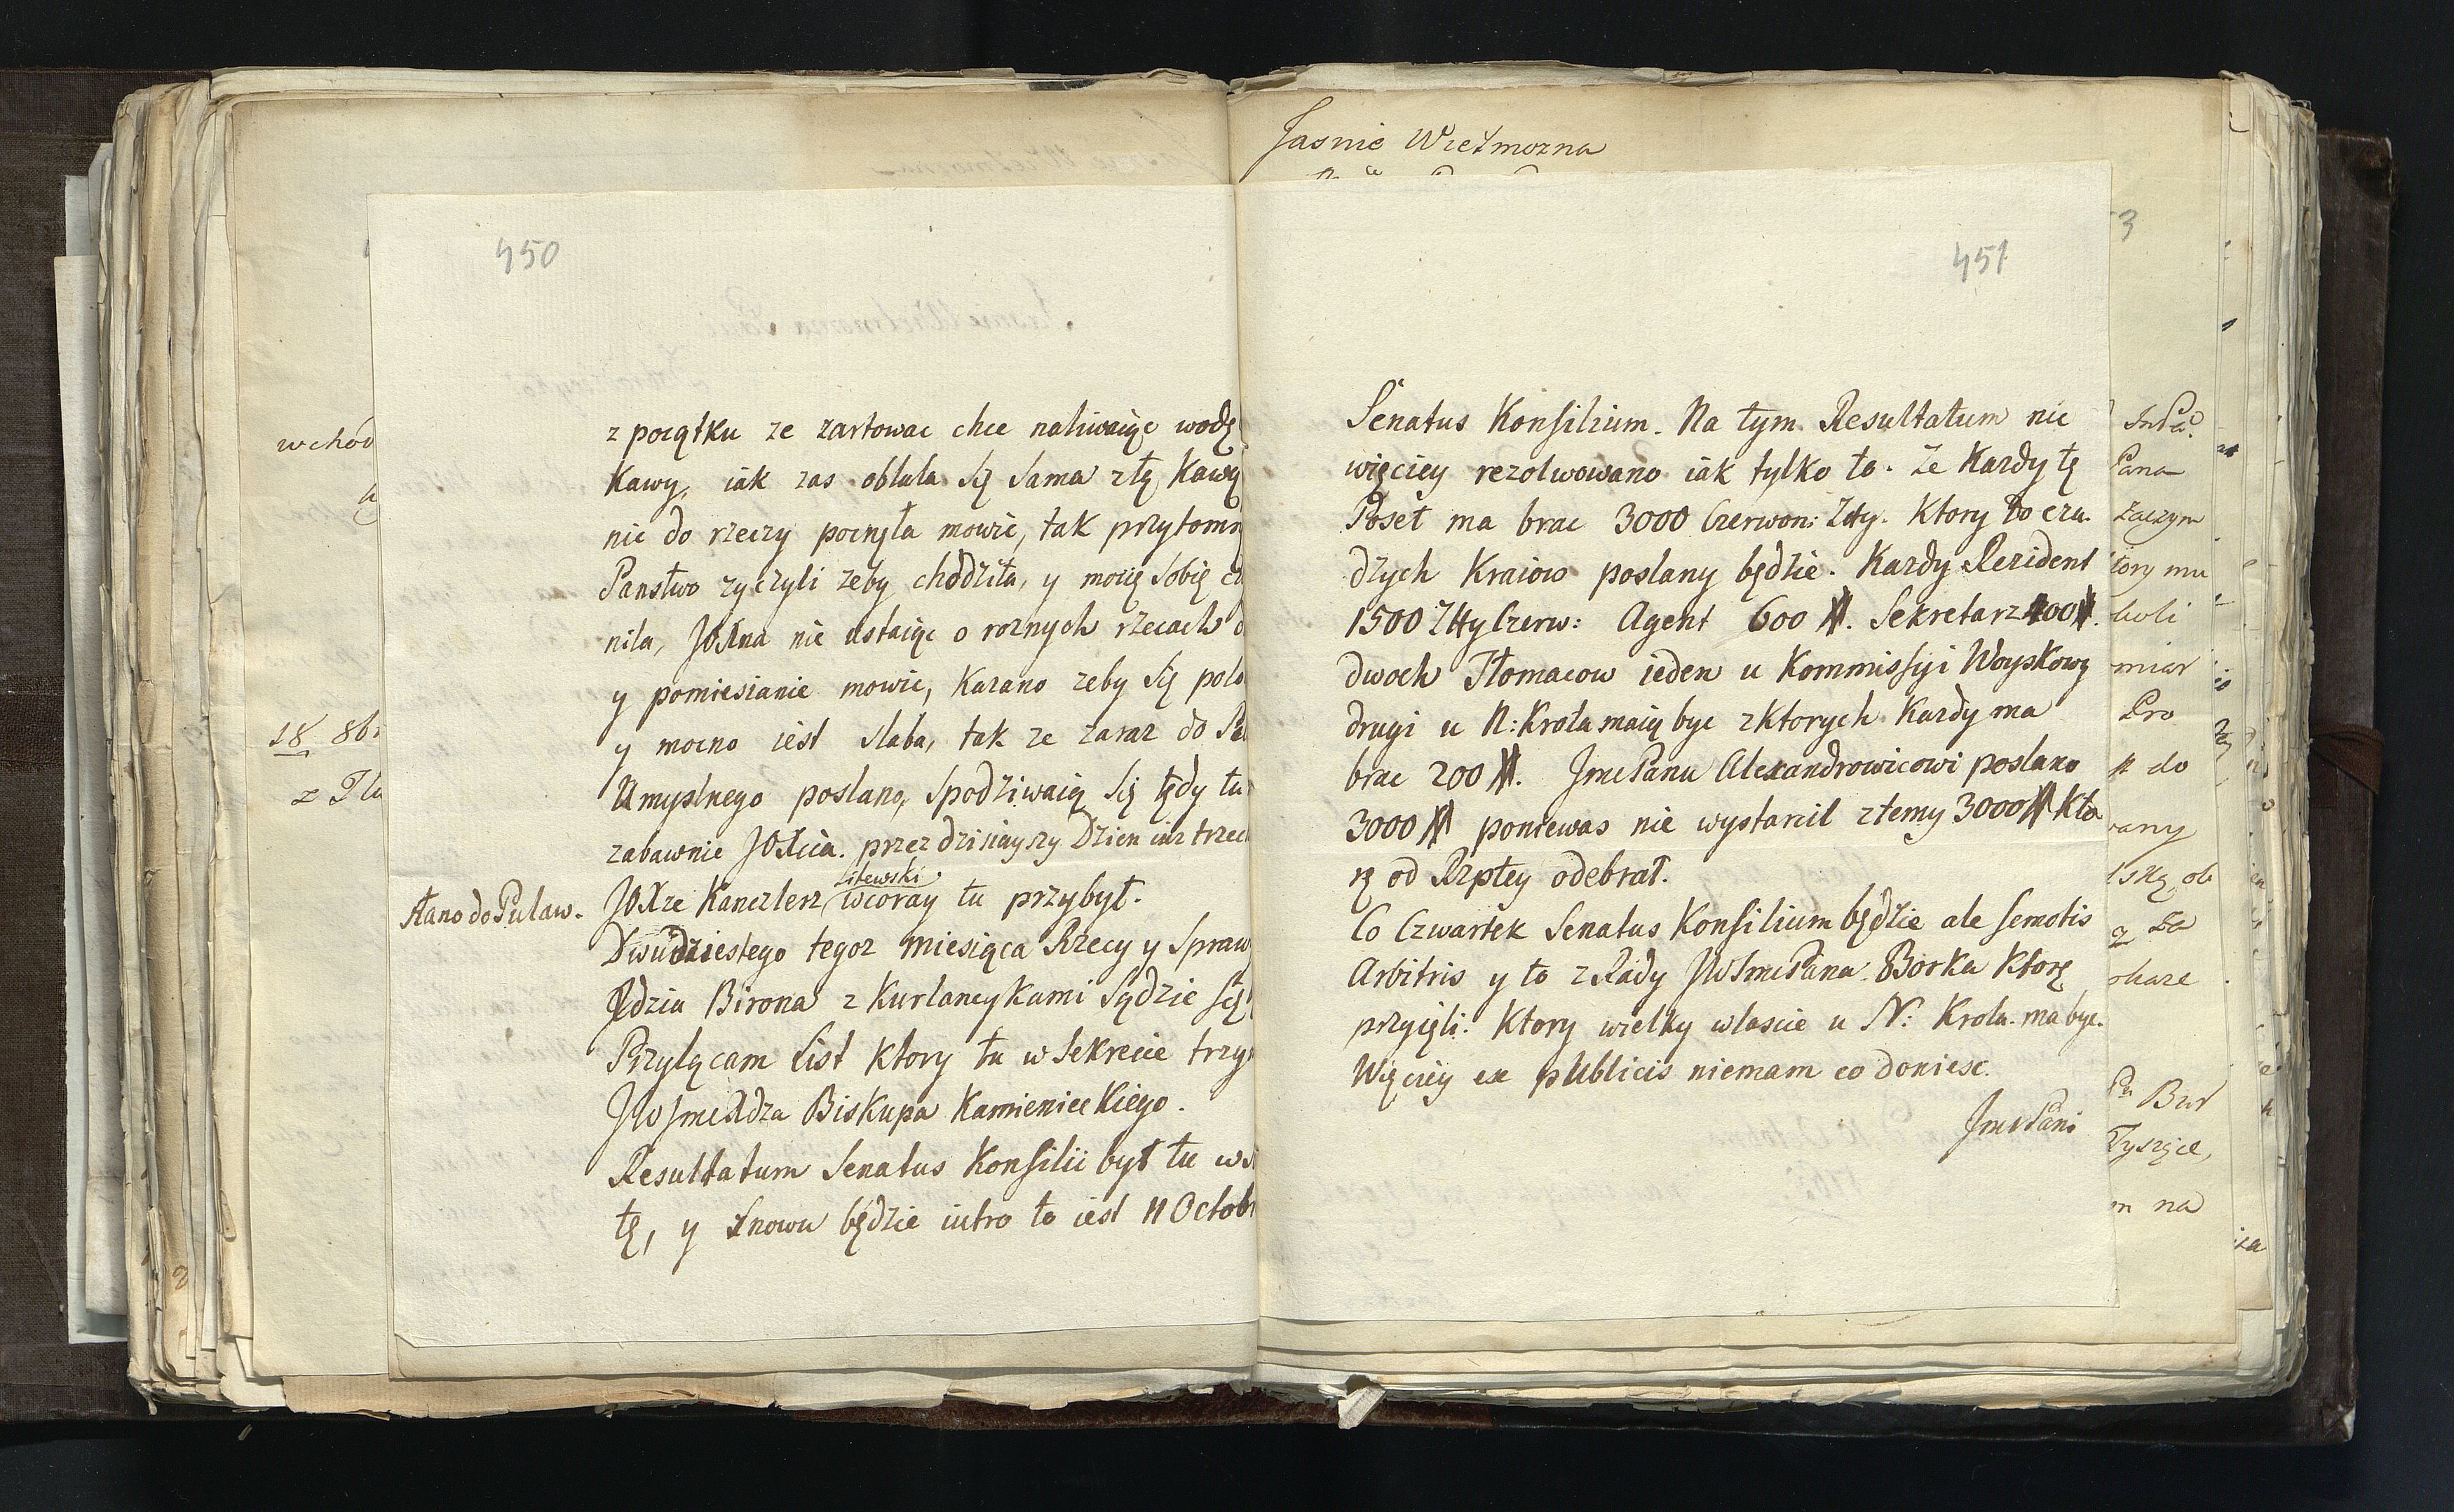 450
z początku ze zartowac chce naliwaiąc wodę
Kawy, iak zas oblała się sama ztą Kawą
nie do rzeczy poczęła mowić, tak przytomn
Panstwo zyczyli zeby chodziła, y mocię sobię
nila, JOXna nie ustaiąc o roznych rzecach
y pomiesianie mowić, Kazano zeby się poło
y mocno iest słaba, tak ze zaraz do
Umyslnego posłano, Spodziwaią się tędy tu
zabawnie JOXcia. przez dzisiayszy Dzien iuz trzec
Litewski
JOXze Kanclerz wcoray tu przybył.
słano do Pulaw.
Dwudziestego tegoz miesiąca Rzecy y Spraw
Xdzia Birona z Kurlancykami Sądzie się
Przyłącam List Ktory tu w Sekrecie trzy
JWJmcXdza Biskupa Kamienieckiego.
Resultatum Senatus Konsilii był tu
tę, y znowu będzie iutro to iest 11 Octobr
wchod
18 8br
Jasnie Wielmozna
451
Senatus Konsilium. Na tym Resultatum nie
więciey rezolwowano iak tylko to. Ze Kazdy tę
Poseł ma brac 3000 Czerwon: Złty. Ktory do czu.
dzych Kraiow posłany będzie. Kazdy Rezident
1500 Złty Czerw: Agent 600 #. Sekretarz 400 #.
dwoch Tłomacow ieden u Kommissyi Woyskowy
drugi u N: Krola maią byc z ktorych Kazdy ma
brac 200 #. JmcPanu Alexandrowicowi posłano
3000 # poniewas nie wystarcil z temy 3000 # Kto
rę od Rzptey odebrał.
Co Czwartek Senatus Konsilium będzie ale semotis
Arbitris y to z Rady JWJmcPana Borka Ktorę
przyięli. Ktory wielky włascie u N: Krola. ma byc.
Więciey ex publicis niemam co doniesc.
JmcPani
3
Pana
Zaczym
tory mu
miar
Pro
do
Bur
Tysięce,
m na